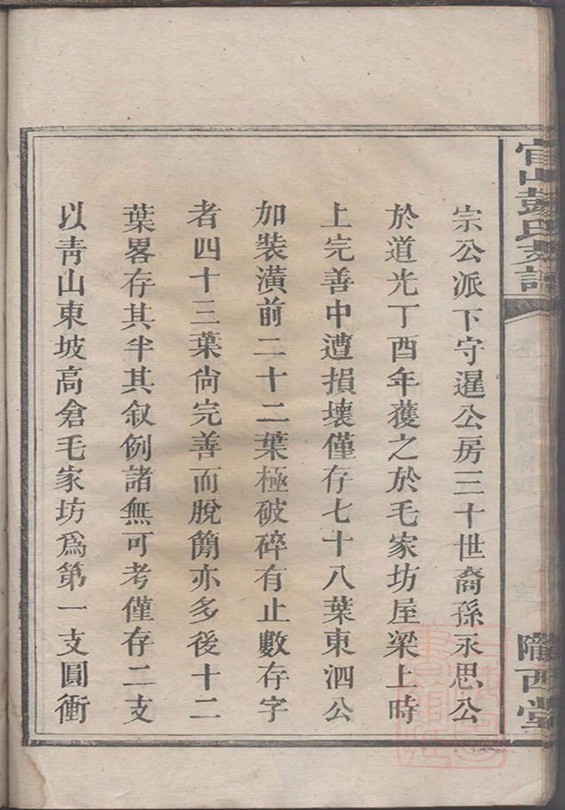 官山彭氏支譜
隴西堂
宗公派下守暹公房三十世裔孫永思公
於道光丁酉年獲之於毛家坊屋梁上時
上完善中遭損壞僅存七十八葉東泗公
加裝潢前二十二葉極破碎有止數存字
者四十三葉尙完善而脫簡亦多後十二
葉畧存其半其叙例諸無可考僅存二支
以靑山東坡高倉毛家坊爲第一支圓衝